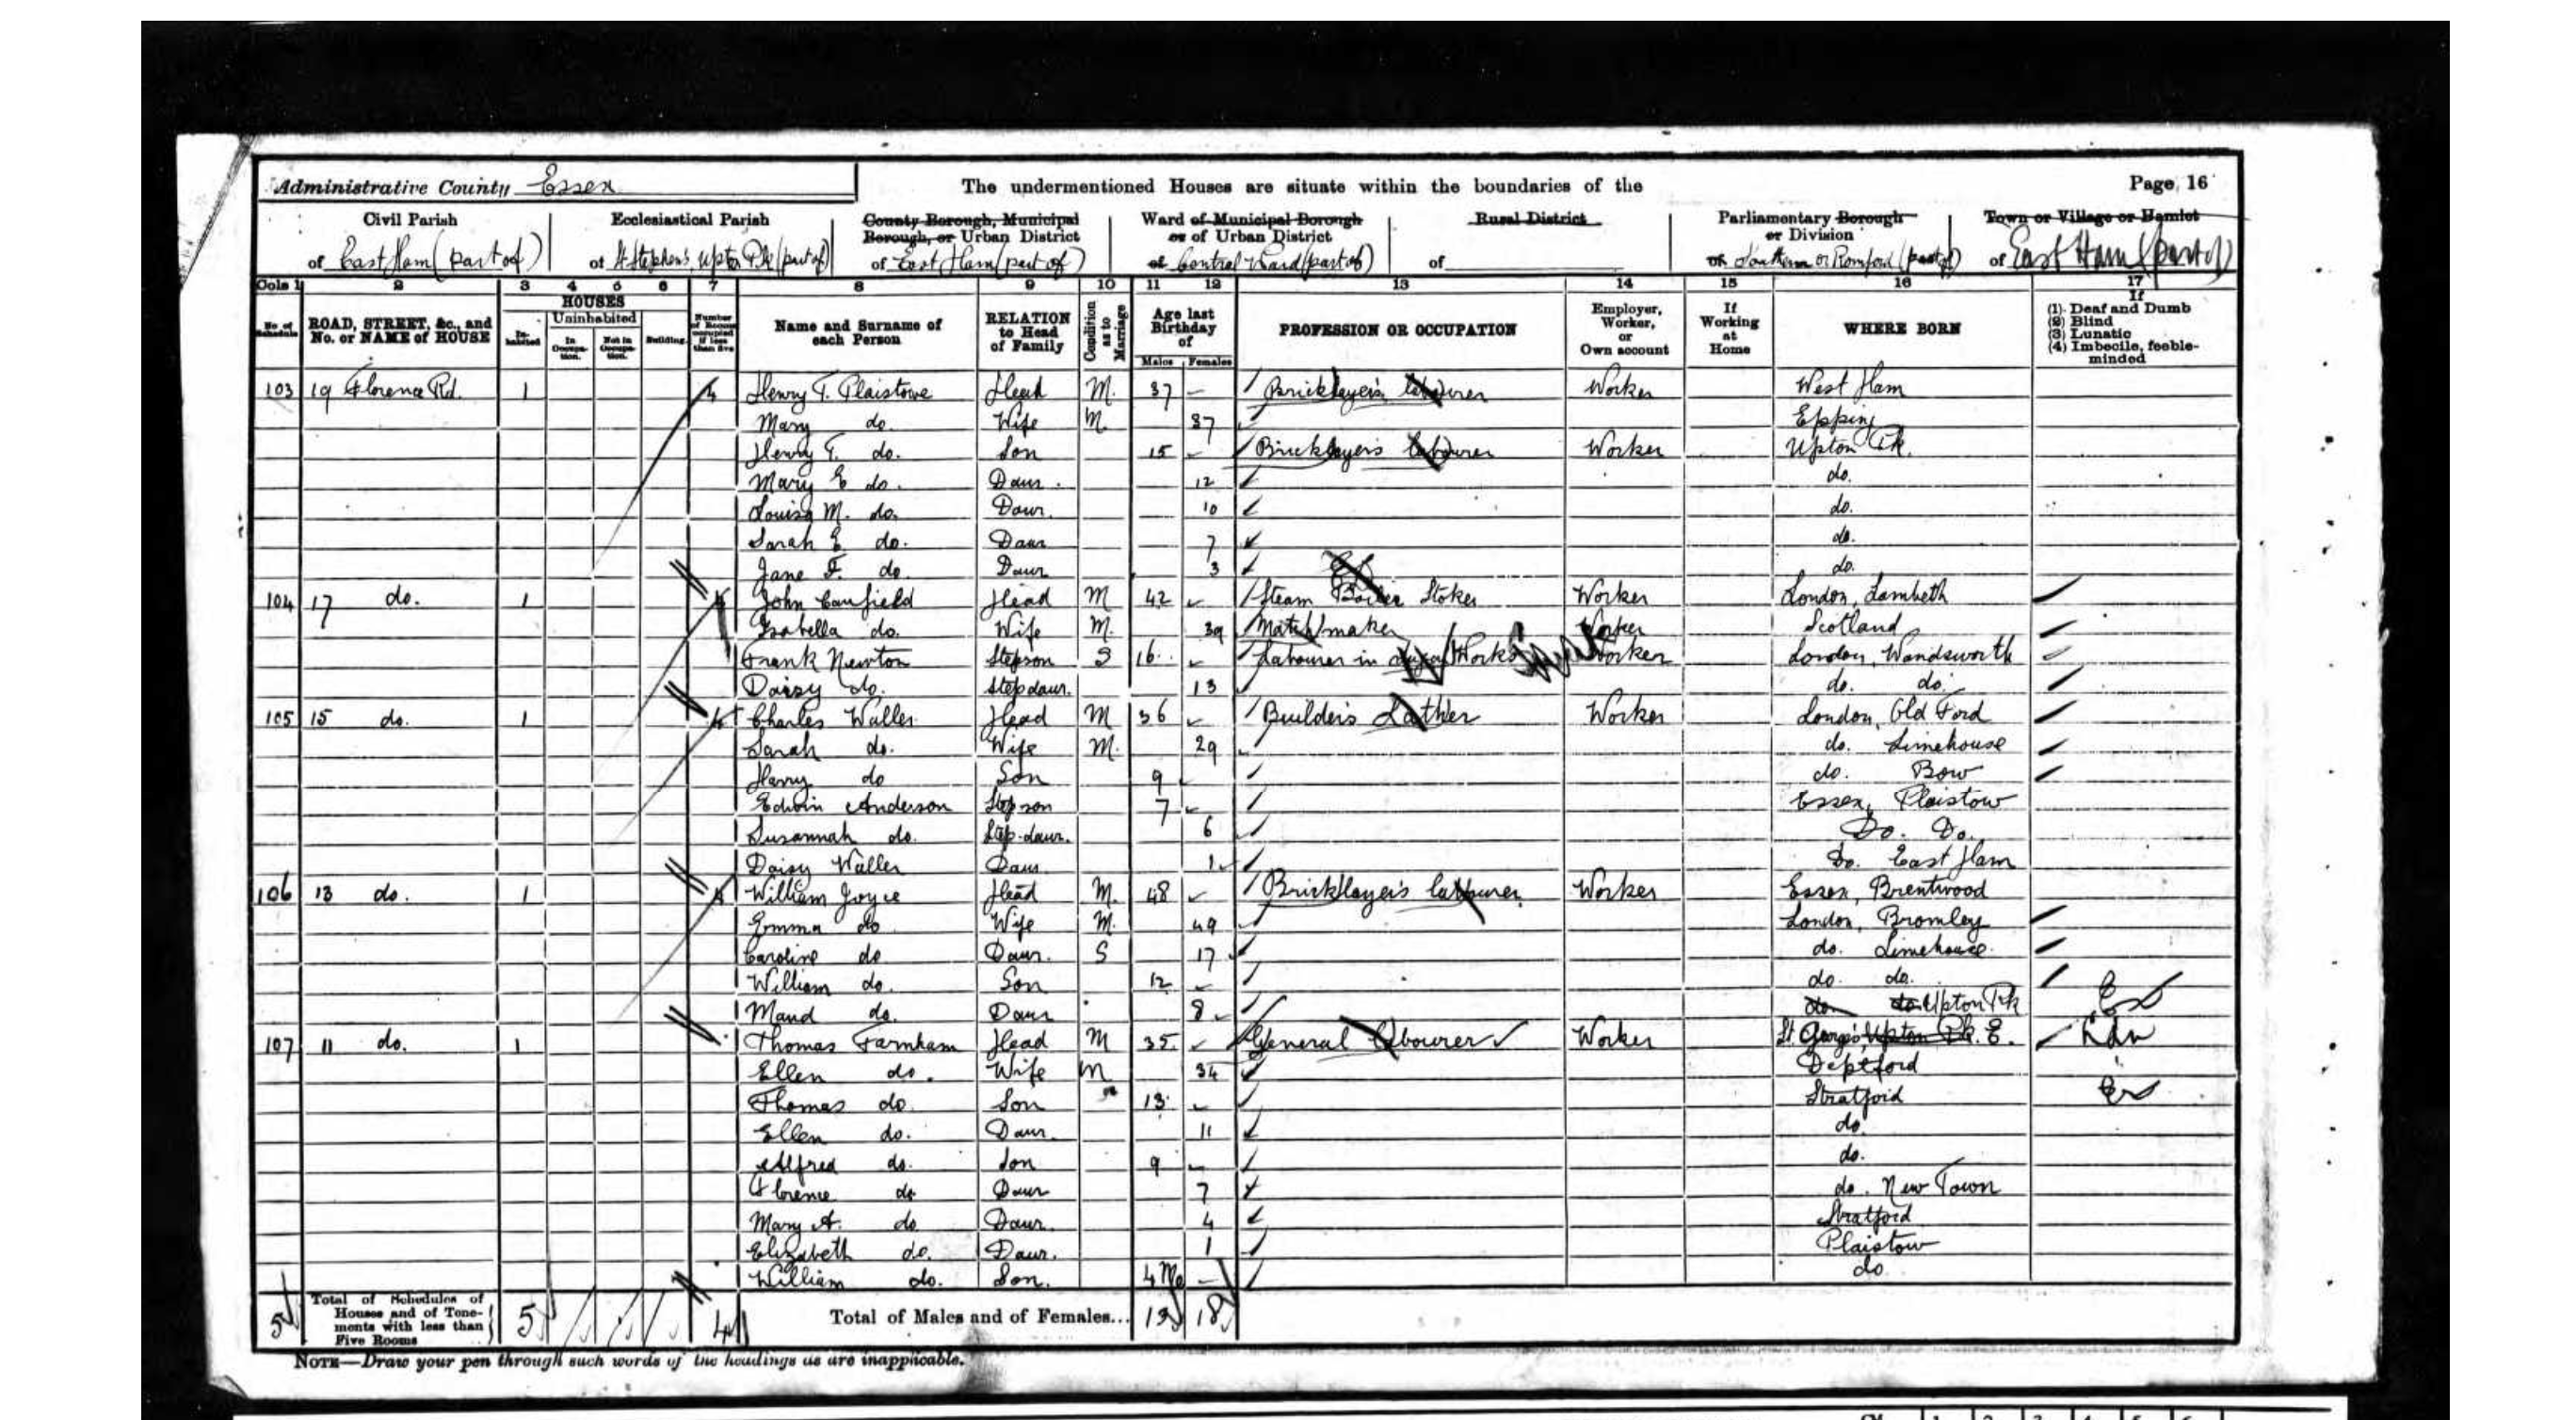 Administrative County Essex
The undermentioned Houses are situate within the boundaries of the
Page 16
Civil Parish of East Ham (part of)
Ecclesiastical Parish of St Stephens, Upton Pk (part of)
County Borough, Municipal Borough, or Urban District of East Ham (part of)
Ward of Municipal Borough or of Urban District of Central Ward (part of)
Rural District of
Parliamentary Borough or Division of Southern or Romford (part of)
Town or Village or Hamlet of East Ham (part of)
Cols 1 2 3 4 5 6 7 8 9 10 11 12 13 14 15 16 17
No. of Schedule
ROAD, STREET, &c., and No. or NAME of HOUSE
HOUSES
In-habited
Uninhabited
In Occupa-tion.
Not in Occupa-tion.
Building.
Number of Rooms occupied if less than five
Name and Surname of each Person
RELATION to Head of Family
Condition as to Marriage
Age last Birthday of
Males Females
PROFESSION OR OCCUPATION
Employer, Worker, or Own account
If Working at Home
WHERE BORN
If
(1) Deaf and Dumb
(2) Blind
(3) Lunatic
(4) Imbecile, feeble-minded
103 19 Florence Rd. 1 4 Henry T. Plaistowe Head M. 37 – Bricklayer's labourer Worker West Ham
Mary do. Wife M. 37 Epping
Henry T. do. Son 15 Bricklayers labourer Worker Upton Pk.
Mary E do. Daur. 12 do.
Louisa M. do. Daur. 10 do.
Sarah E do. Daur 7 do.
Jane F. do. Daur 3 do.
104 17 do. 1 4 John Canfield Head M 42 Steam Boiler Stoker Worker London, Lambeth
Isabella do. Wife M. 39 Match maker Worker Scotland
Frank Newton Stepson S 16 Labourer in Works Worker London, Wandsworth
Daisy do. Step daur. 13 do. do.
105 15 do. 1 4 Charles Waller Head M 36 Builder's Lather Worker London, Old Ford
Sarah do. Wife M. 29 do. Limehouse
Harry do Son 9 do. Bow
Edwin Anderson Stepson 7 Essex, Plaistow
Susannah do. Step-daur. 6 Do. Do.
Daisy Waller Daur 1 Do. East Ham
106 13 do. 1 4 William Joyce Head M. 48 Bricklayer's labourer Worker Essex, Brentwood
Emma do Wife M. 49 London, Bromley
Caroline do Daur. S 17 do. Limehouse
William do. Son 12 do. do.
Maud do. Daur 8 do. do. Upton Pk
107 11 do. 1 Thomas Farnham Head M 35 General Labourer Worker St. George's, Upton Pk. E. Ldn
Ellen do. Wife M 34 Deptford
Thomas do. Son 13 Stratford
Ellen do. Daur. 11 do.
Alfred do. Son 9 do.
Florence do Daur 7 do. New Town
Mary A. do Daur. 4 Stratford
Elizabeth do. Daur. 1 Plaistow
William do. Son. 4 Mo – do
5 Total of Schedules of Houses and of Tene-ments with less than Five Rooms 5 4 Total of Males and of Females... 13 18
NOTE—Draw your pen through such words of the headings as are inapplicable.